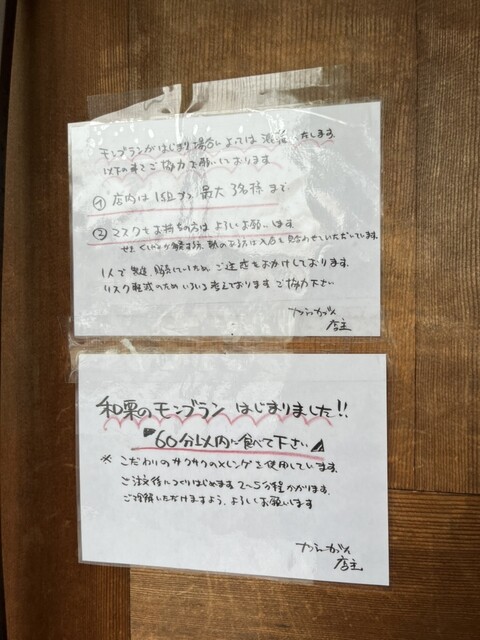 モンブランがはじまり場合によっては混雑いたします。
以下の事でご協力を願いております
① 店内は1組ずつ 最大3名様まで
② マスクをお持ちの方は よろしくお願いします。
1人で製造、販売しているため ご迷惑をおかけしております。
リスク軽減のためいろいろ考えております ご協力下さい
店主
和栗のモンブラン はじまりました!!
60分以内に食べて下さい
※ こだわりのサクサクのメレンゲを使用しています。
ご注文後につくりはじめます 2〜5分程かかります。
ご理解いただけますよう、よろしくお願いします
店主